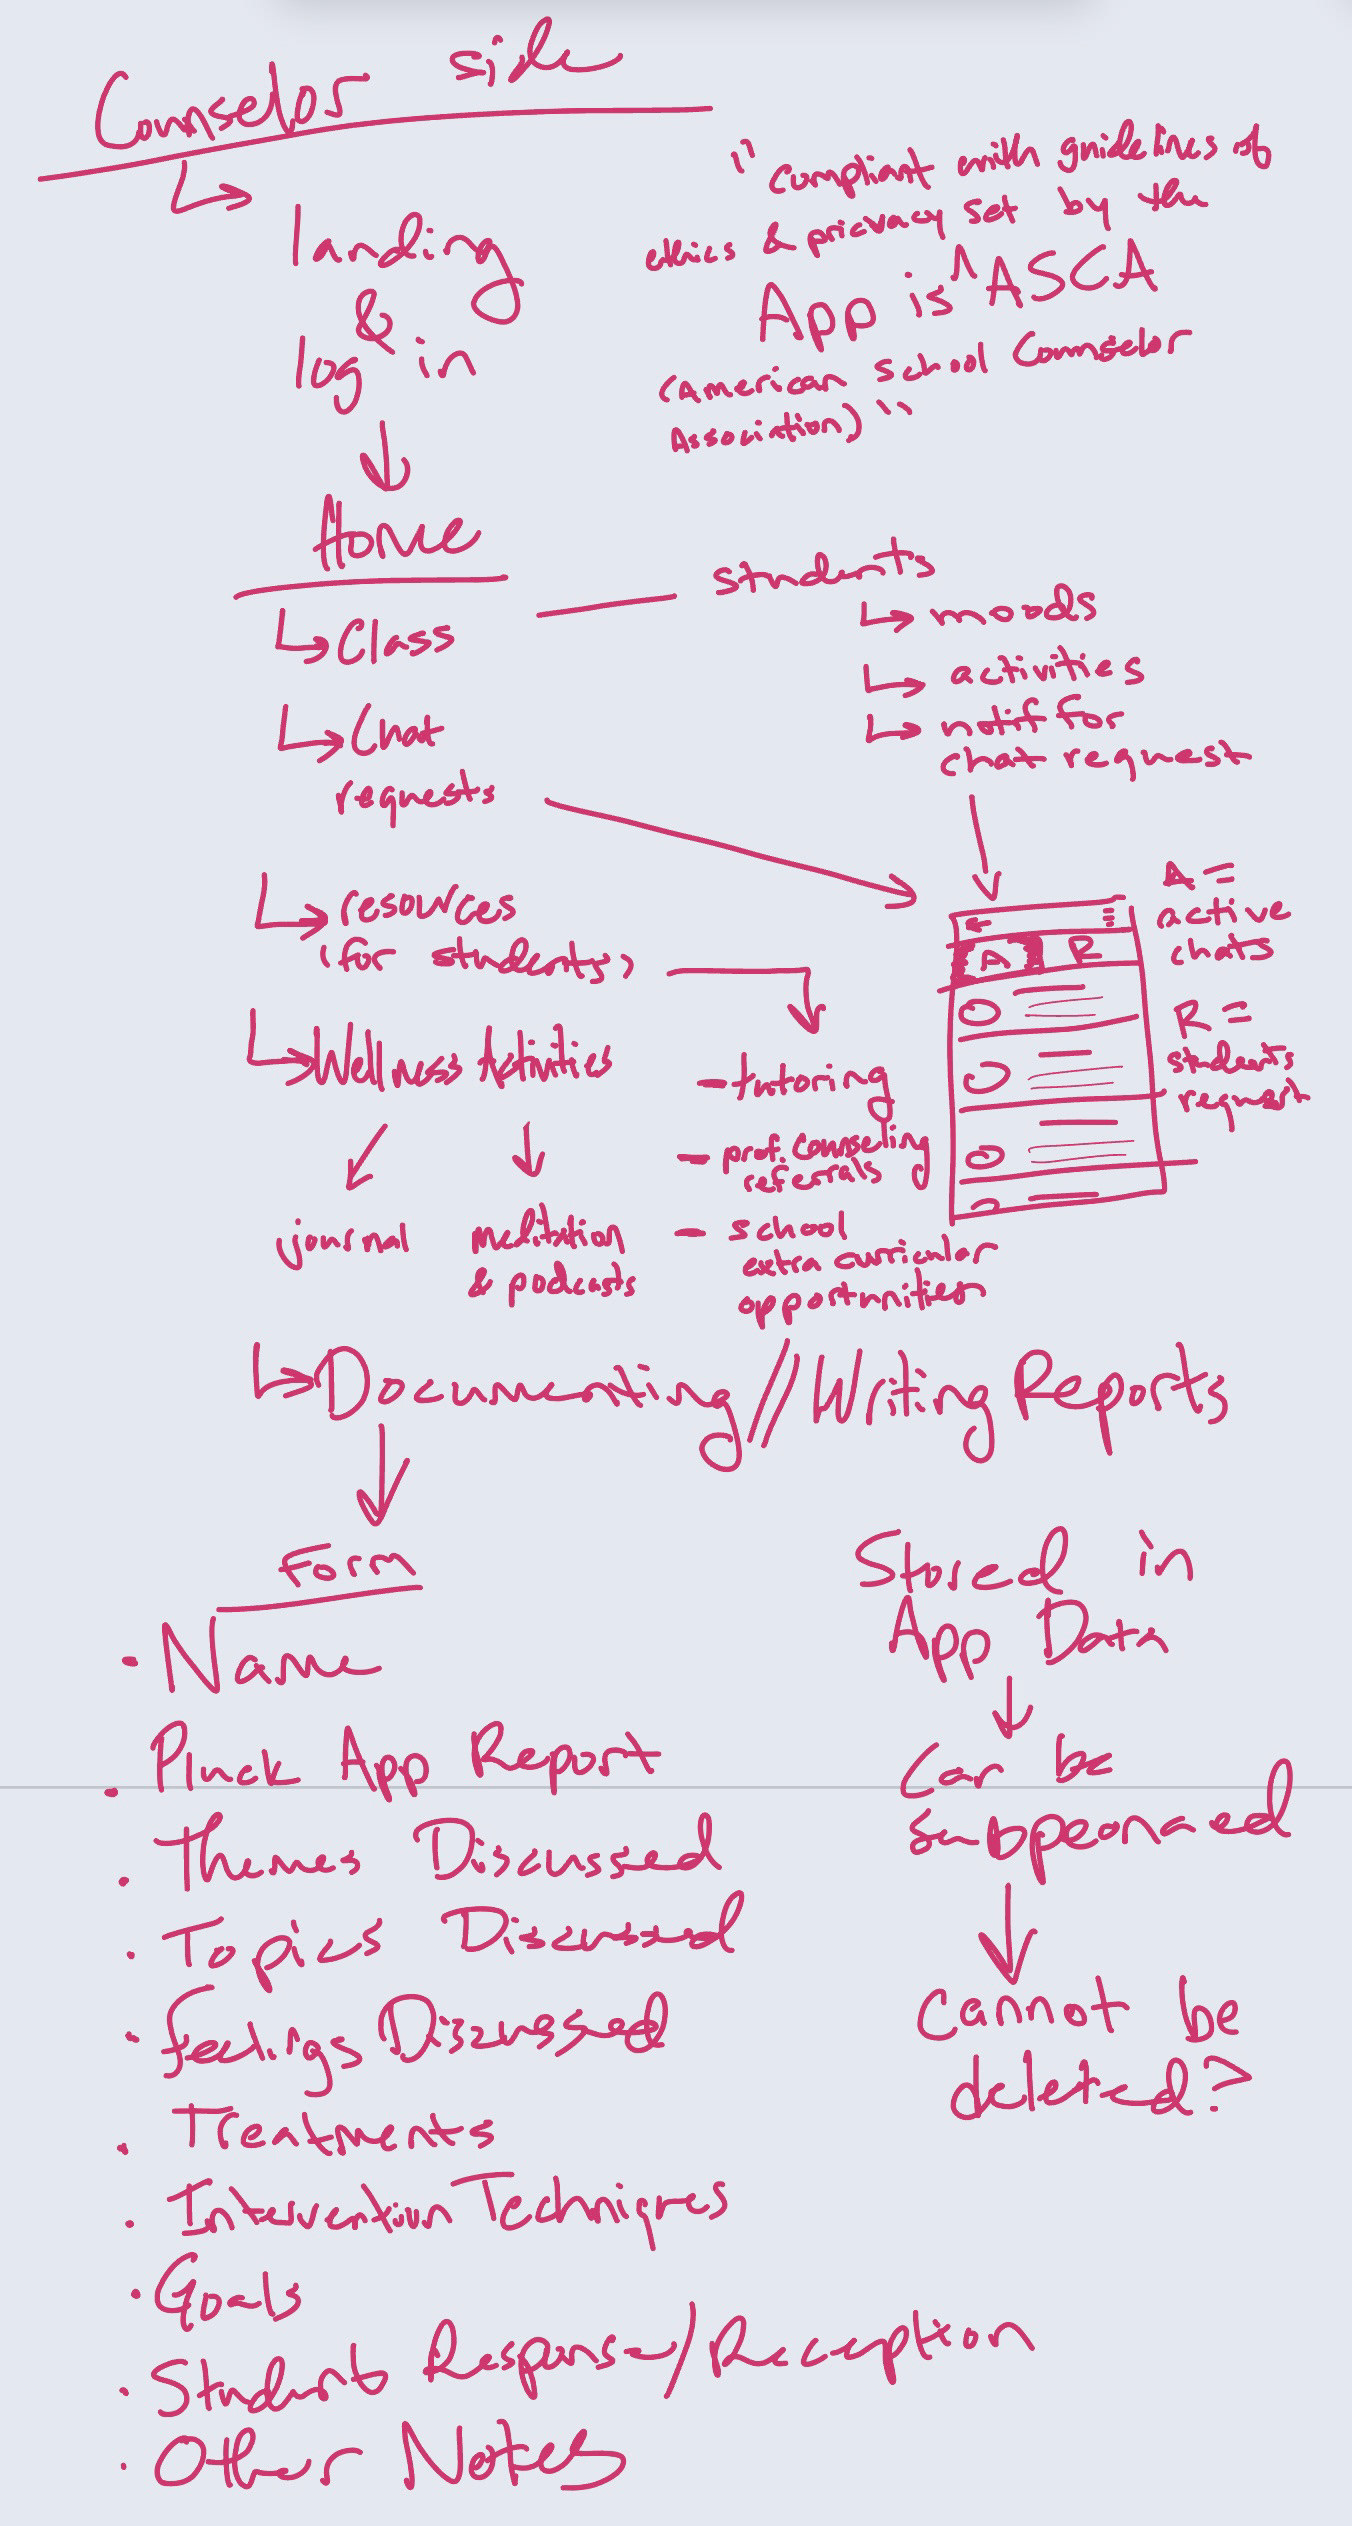 Counselor side
landing
&
log in
"compliant with guidelines of
ethics & pricvacy set by the
App is ^ ASCA
(American School Counselor
Association)"
Home
Class
students
moods
activities
notif for
chat request
Chat
requests
resources
(for students)
Wellness Activities
journal
meditation
& podcasts
- tutoring
- prof. counseling
referrals
- school
extra curricular
opportunities
A =
active
chats
A R
R =
students
request
Documenting // Writing Reports
Form
• Name
• Pluck App Report
• Themes Discussed
• Topics Discussed
• Feelings Discussed
• Treatments
• Intervention Techniques
• Goals
• Student Response/Reception
• Other Notes
Stored in
App Data
Can be
subpeonaed
Cannot be
deleted?